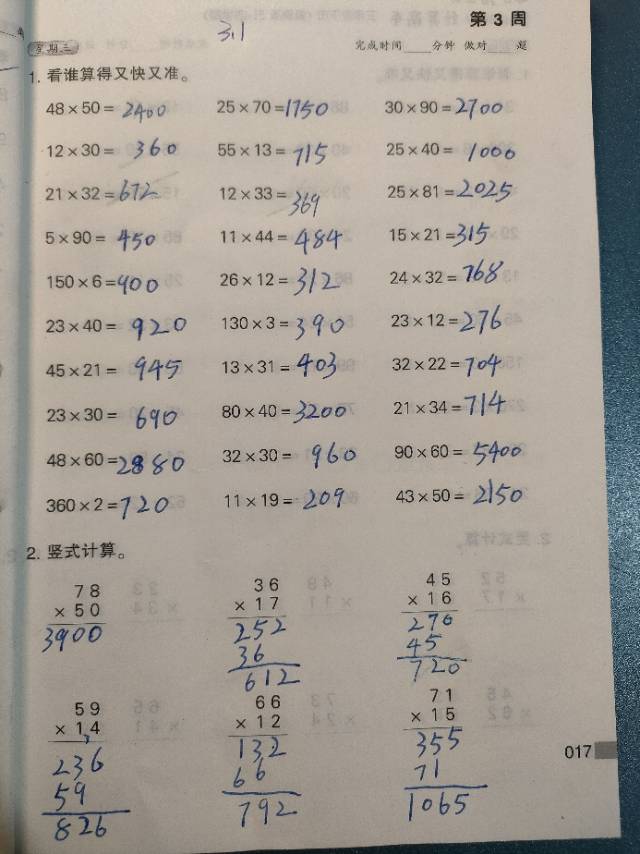 3.1
第 3 周
星期三
完成时间____分钟 做对____题
1. 看谁算得又快又准。
48 × 50 = 2400 25 × 70 = 1750 30 × 90 = 2700
12 × 30 = 360 55 × 13 = 715 25 × 40 = 1000
21 × 32 = 672 12 × 33 = 369 25 × 81 = 2025
5 × 90 = 450 11 × 44 = 484 15 × 21 = 315
150 × 6 = 900 26 × 12 = 312 24 × 32 = 768
23 × 40 = 920 130 × 3 = 390 23 × 12 = 276
45 × 21 = 945 13 × 31 = 403 32 × 22 = 704
23 × 30 = 690 80 × 40 = 3200 21 × 34 = 714
48 × 60 = 2880 32 × 30 = 960 90 × 60 = 5400
360 × 2 = 720 11 × 19 = 209 43 × 50 = 2150
2. 竖式计算。
78 36 45
× 50 × 17 × 16
3900 252 270
36 45
612 720
59 66 71
× 14 × 12 × 15
3
236 132 355
59 66 71
826 792 1065
017